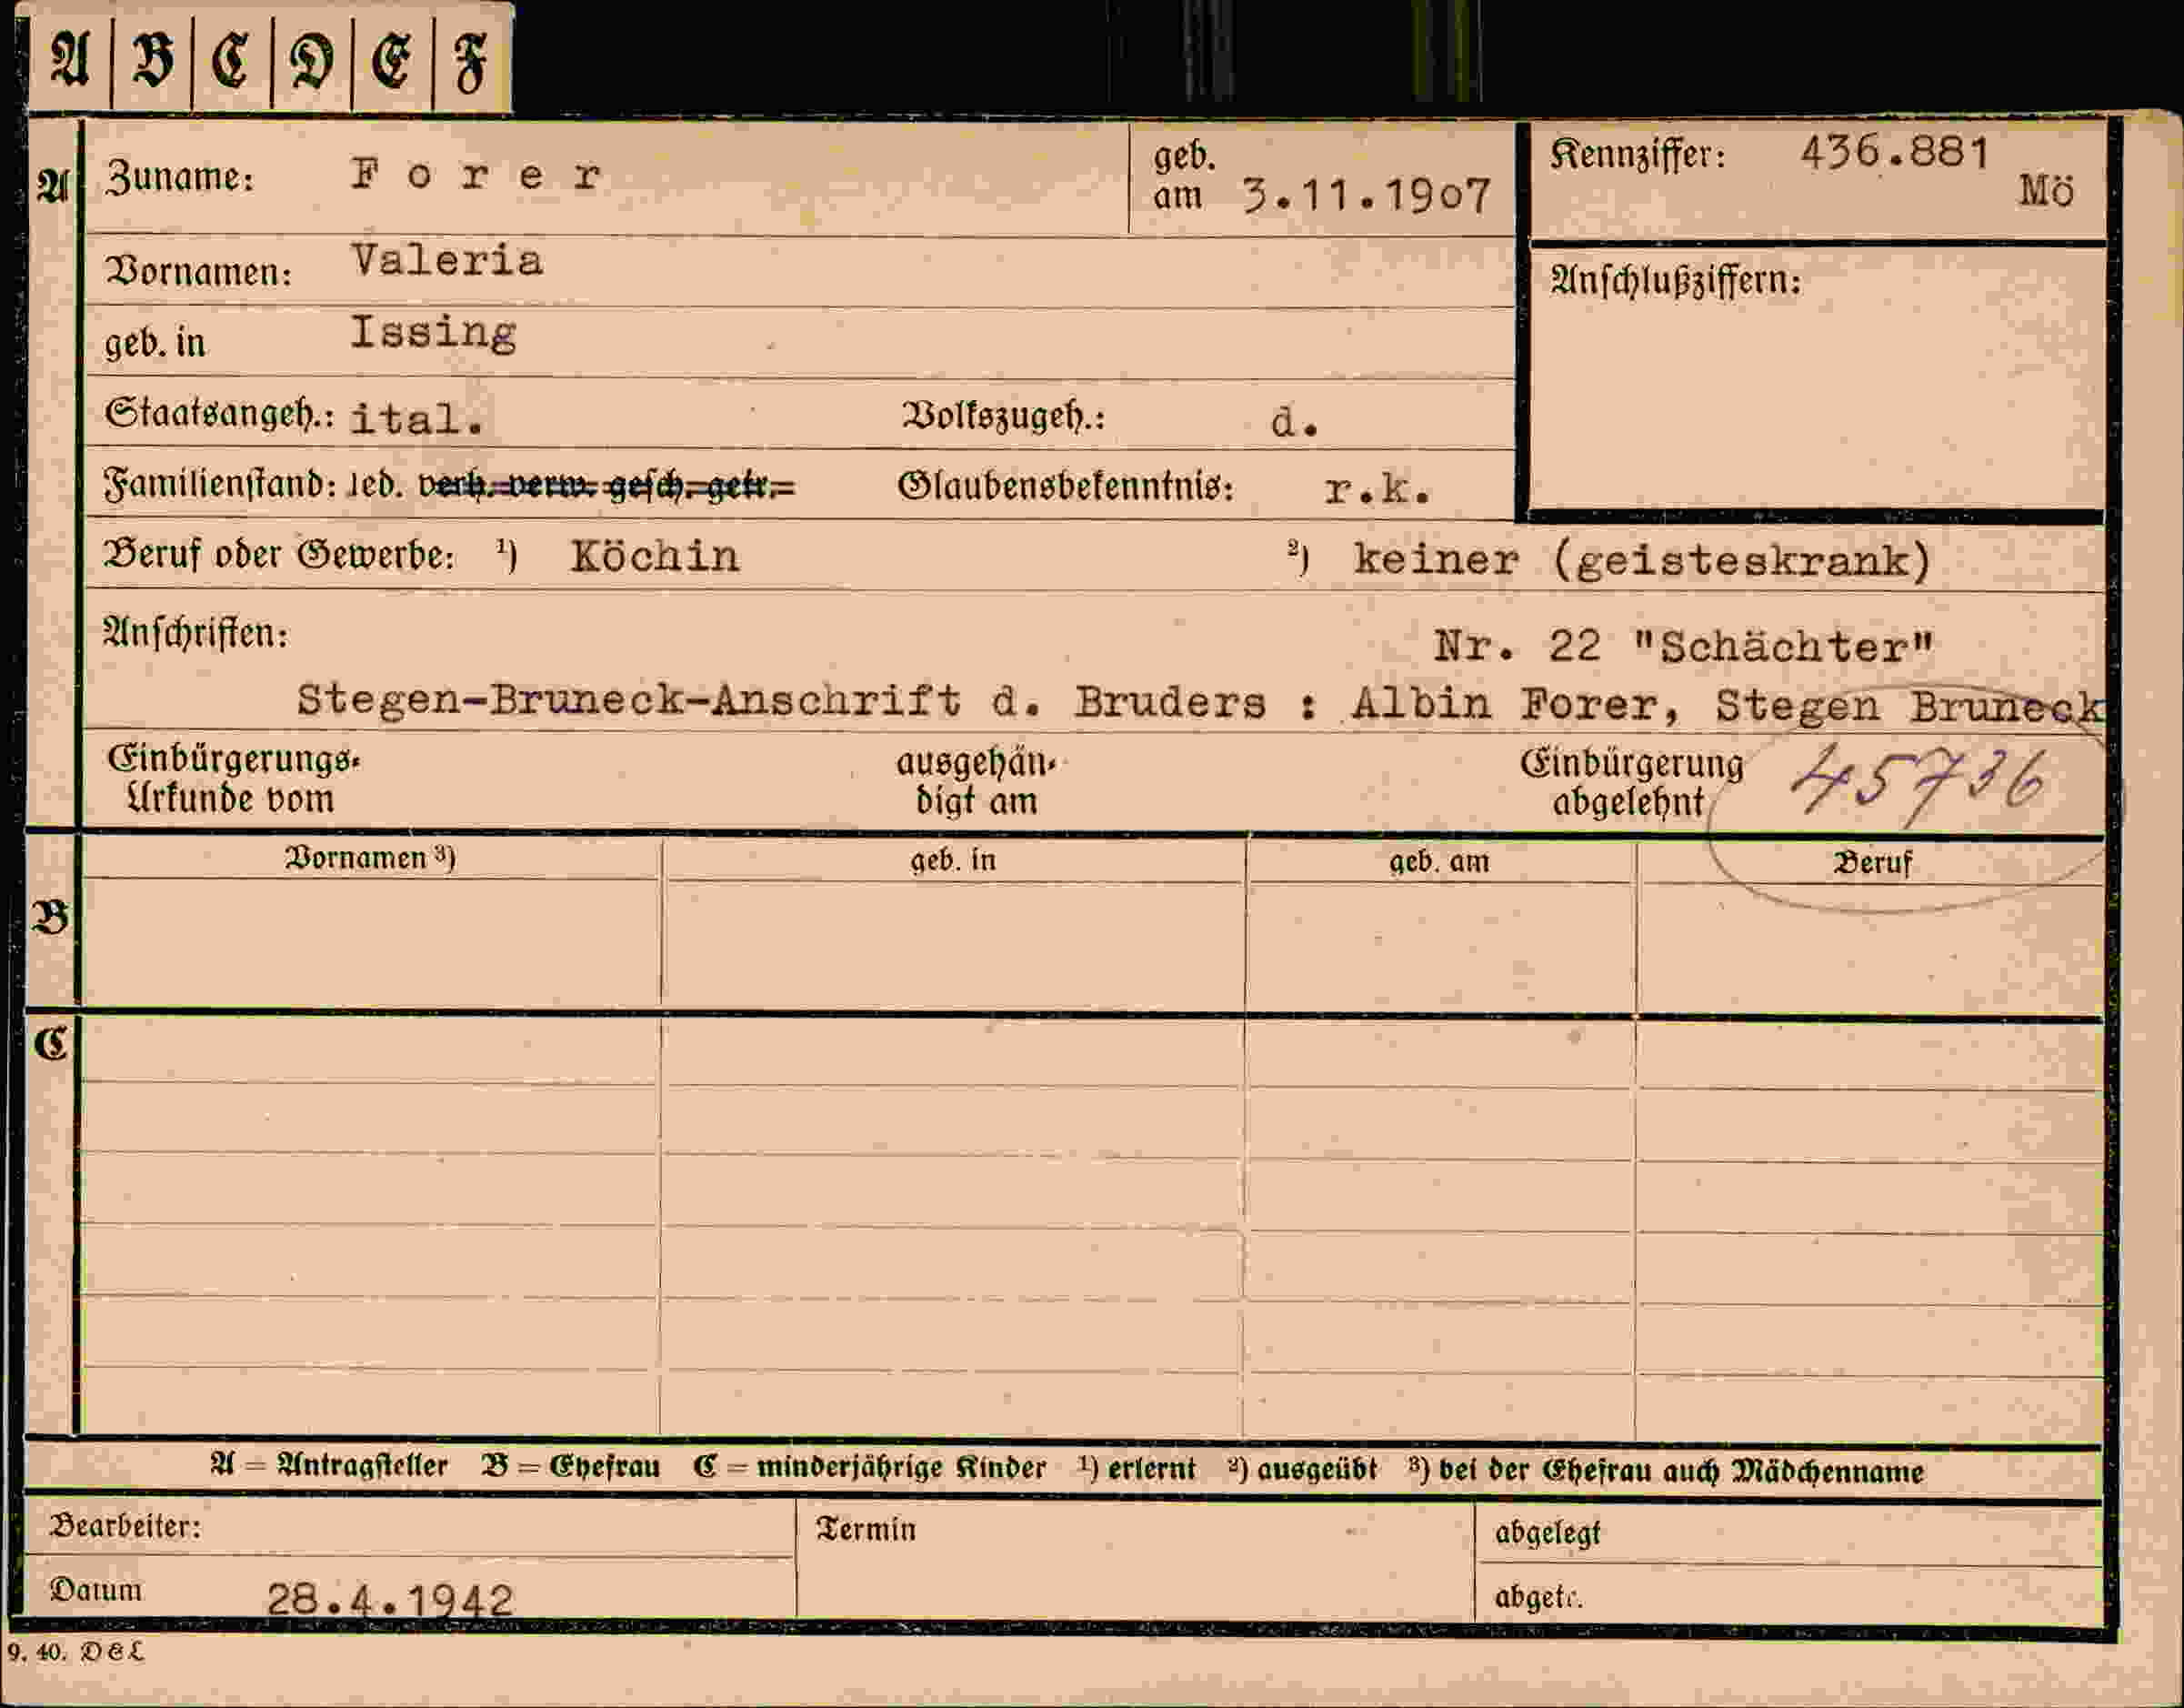 A B C D E F
A Zuname: Forer geb. am 3.11.1907 Kennziffer: 436.881
Mö
Vornamen: Valeria Anschlußziffern:
geb. in Issing
Staatsangeh.: ital. Volkszugeh.: d.
Familienstand: led. verh. verw. gesch. getr. Glaubensbekenntnis: r.k.
Beruf oder Gewerbe: ¹) Köchin ²) keiner (geisteskrank)
Anschriften: Nr. 22 "Schächter"
Stegen-Bruneck-Anschrift d. Bruders : Albin Forer, Stegen Bruneck
Einbürgerungs- ausgehän- Einbürgerung 45736
Urkunde vom digt am abgelehnt
Vornamen ³) geb. in geb. am Beruf
B
C
A = Antragsteller B = Ehefrau C = minderjährige Kinder ¹) erlernt ²) ausgeübt ³) bei der Ehefrau auch Mädchenname
Bearbeiter: Termin abgelegt
Datum 28.4.1942 abgetr.
9. 40. D&L